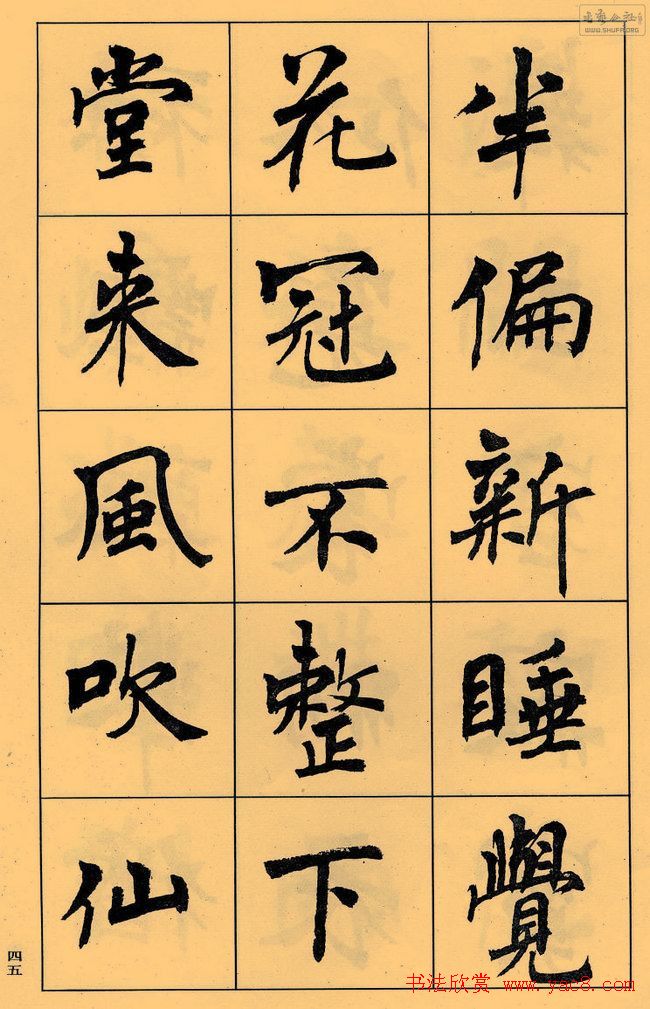 半偏新睡覺
花冠不整下
堂来風吹仙
四五
书法欣赏 www.yac8.com
WWW.SHUFA.ORG